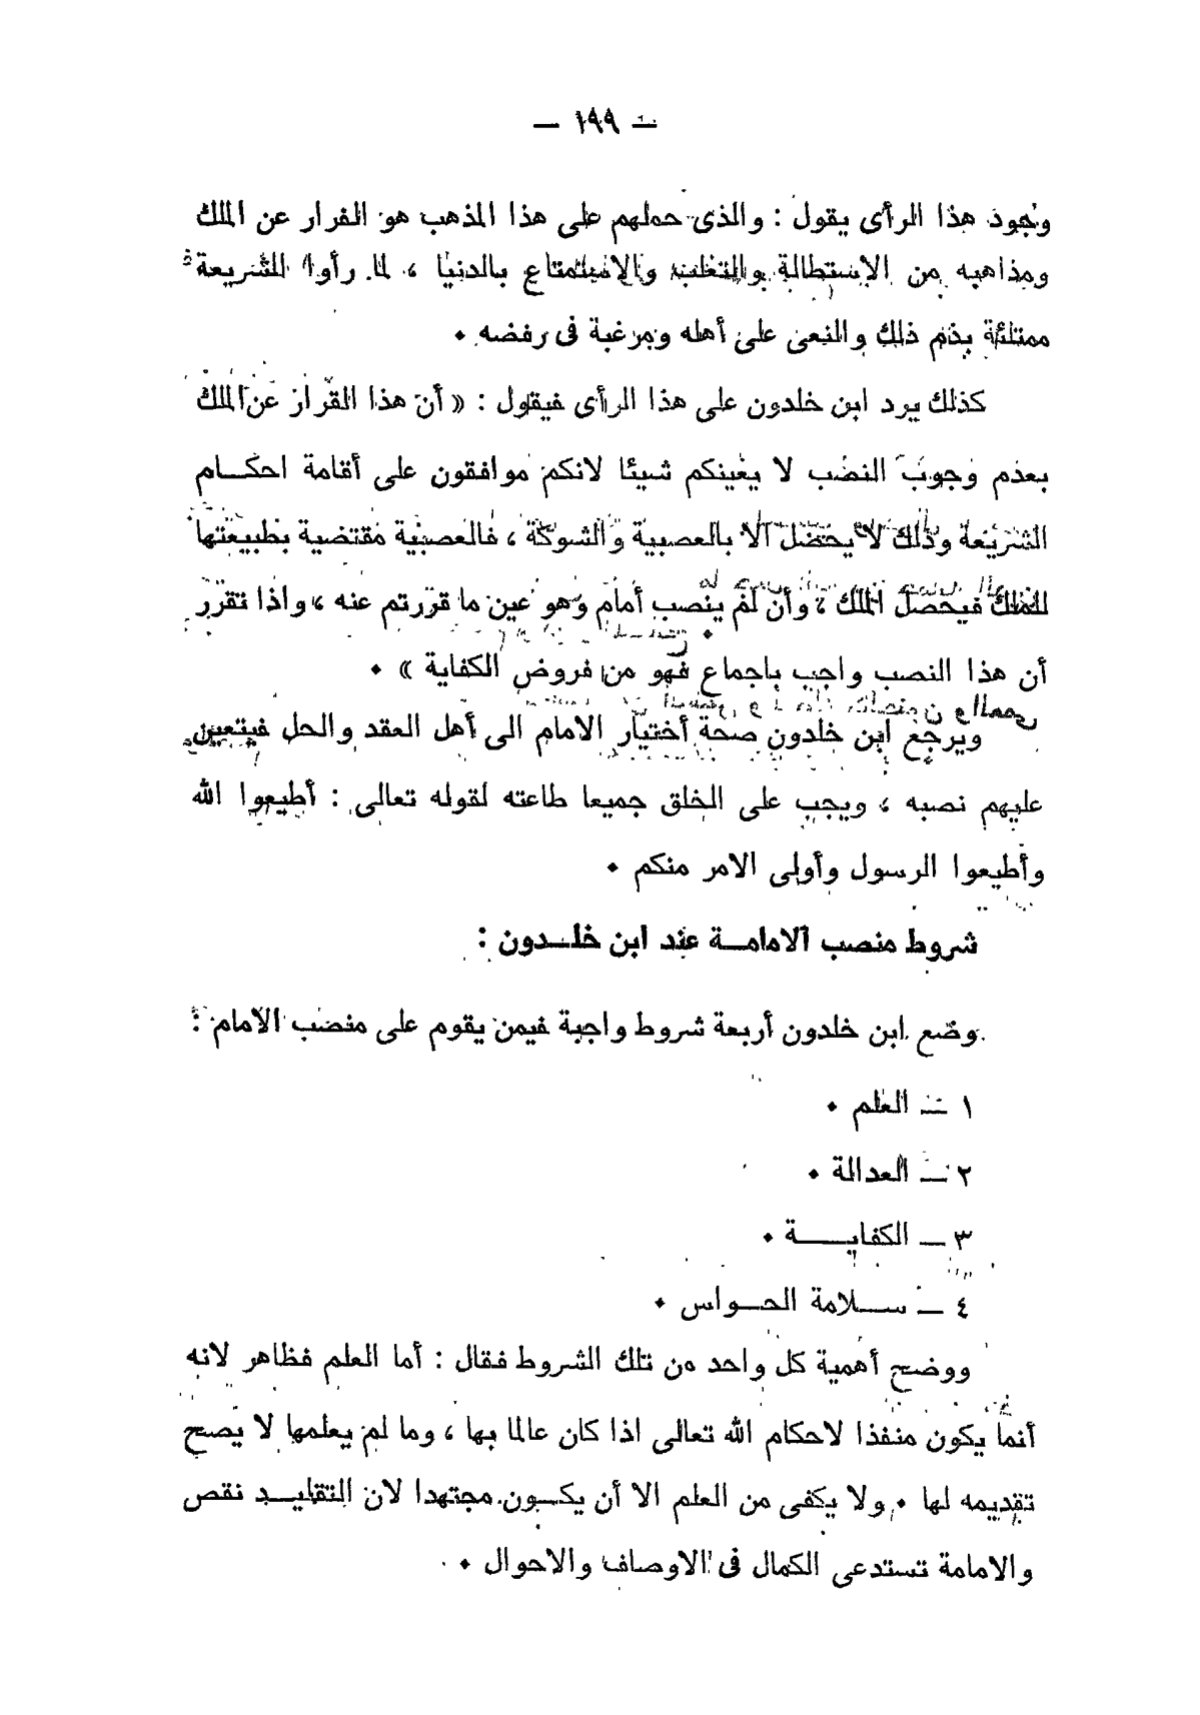 — ١٩٩ —
وجود هذا الرأى يقول : والذى حملهم على هذا المذهب هو الفرار عن الملك
ومذاهبه من الاستطالة والتغلب والاستمتاع بالدنيا ، لما رأوا الشريعة
ممتلئة بذم ذلك والنعى على أهله ومرغبة فى رفضه .
كذلك يرد ابن خلدون على هذا الرأى فيقول : « أن هذا الفرار عن الملك
بعدم وجوب النصب لا يغينكم شيئا لانكم موافقون على أقامة احكام
الشريعة وذلك لا يحصل الا بالعصبية والشوكة ، فالعصبية مقتضية بطبيعتها
للملك فيحصل الملك ، وأن لم ينصب أمام وهو عين ما قررتم عنه ، واذا تقرر
أن هذا النصب واجب باجماع فهو من فروض الكفاية » .
ويرجع ابن خلدون صحة أختيار الامام الى أهل العقد والحل فيتعين
عليهم نصبه ، ويجب على الخلق جميعا طاعته لقوله تعالى : أطيعوا الله
وأطيعوا الرسول وأولى الامر منكم .
شروط منصب الامامة عند ابن خلدون :
وضع ابن خلدون أربعة شروط واجبة فيمن يقوم على منصب الامام :
١ — العلم .
٢ — العدالة .
٣ — الكفاية .
٤ — سلامة الحواس .
ووضح أهمية كل واحد من تلك الشروط فقال : أما العلم فظاهر لانه
أنما يكون منفذا لاحكام الله تعالى اذا كان عالما بها ، وما لم يعلمها لا يصح
تقديمه لها . ولا يكفى من العلم الا أن يكون مجتهدا لان التقليد نقص
والامامة تستدعى الكمال فى الاوصاف والاحوال .